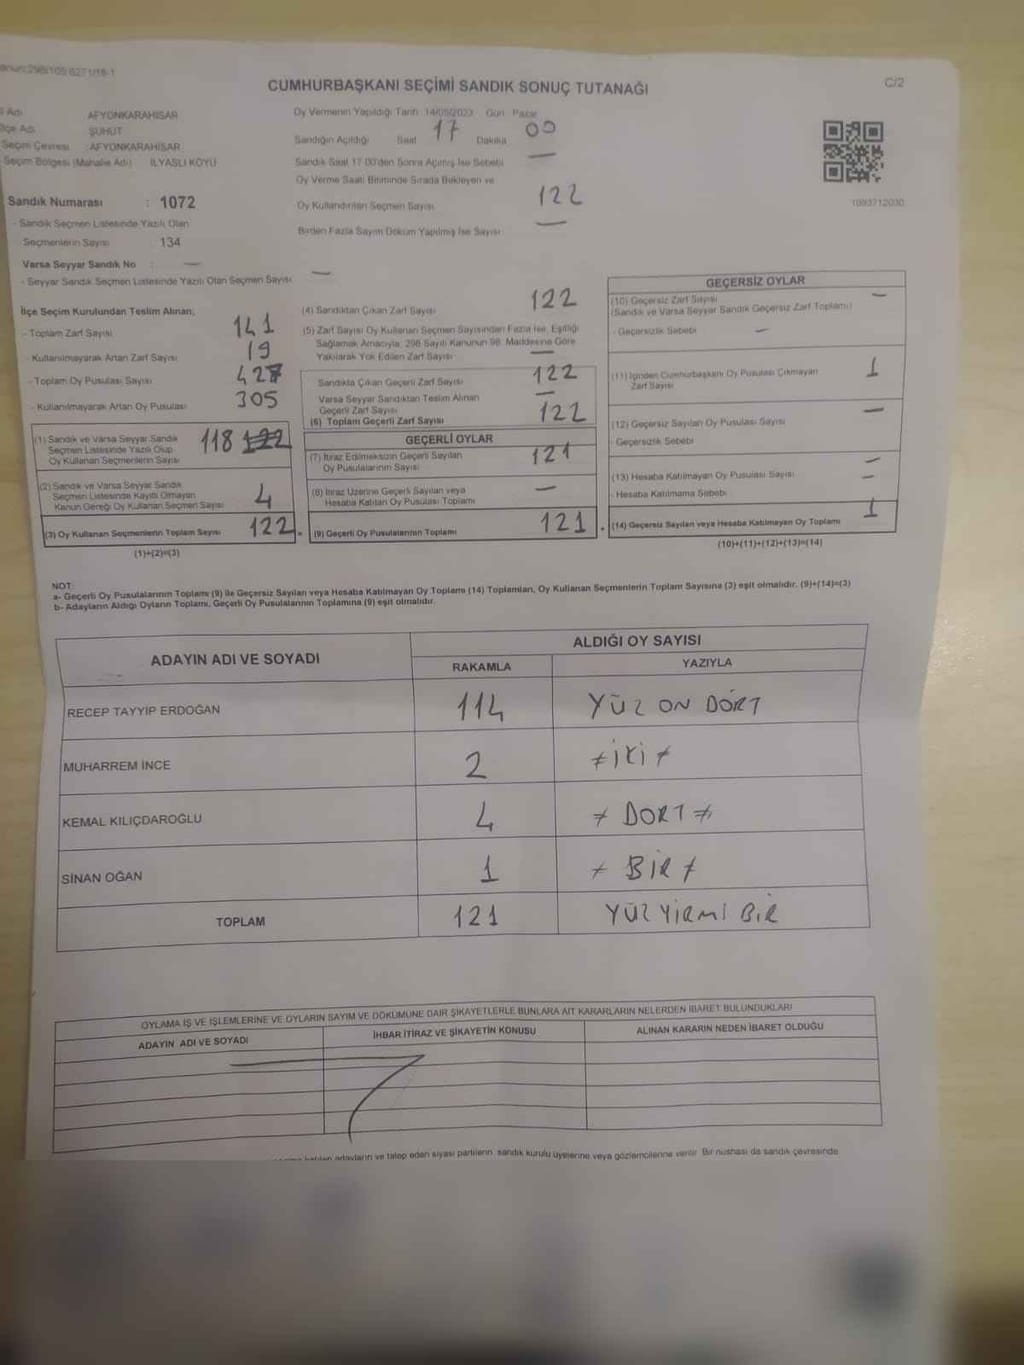 CUMHURBAŞKANI SEÇİMİ SANDIK SONUÇ TUTANAĞI
C/2
İl Adı AFYONKARAHİSAR
İlçe Adı ŞUHUT
Seçim Çevresi : AFYONKARAHİSAR
Seçim Bölgesi (Mahalle Adı) İLYASLI KÖYÜ
Sandık Numarası : 1072
- Sandık Seçmen Listesinde Yazılı Olan
Seçmenlerin Sayısı 134
Varsa Seyyar Sandık No : —
- Seyyar Sandık Seçmen Listesinde Yazılı Olan Seçmen Sayısı —
Oy Vermenin Yapıldığı Tarih 14/05/2023 Gün Pazar
Sandığın Açıldığı Saat 17 Dakika 00
Sandık Saat 17.00'den Sonra Açılmış İse Sebebi —
Oy Verme Saati Bitiminde Sırada Bekleyen ve
Oy Kullandırılan Seçmen Sayısı 122
Birden Fazla Sayım Döküm Yapılmış İse Sayısı —
1093712030
İlçe Seçim Kurulundan Teslim Alınan;
- Toplam Zarf Sayısı 141
- Kullanılmayarak Artan Zarf Sayısı 19
- Toplam Oy Pusulası Sayısı 427
- Kullanılmayarak Artan Oy Pusulası 305
(1) Sandık ve Varsa Seyyar Sandık
Seçmen Listesinde Yazılı Olup
Oy Kullanan Seçmenlerin Sayısı 118 122
(2) Sandık ve Varsa Seyyar Sandık
Seçmen Listesinde Kayıtlı Olmayan
Kanun Gereği Oy Kullanan Seçmen Sayısı 4
(3) Oy Kullanan Seçmenlerin Toplam Sayısı 122
(1)+(2)=(3)
(4) Sandıktan Çıkan Zarf Sayısı 122
(5) Zarf Sayısı Oy Kullanan Seçmen Sayısından Fazla İse, Eşitliği
Sağlamak Amacıyla, 298 Sayılı Kanunun 98. Maddesine Göre
Yakılarak Yok Edilen Zarf Sayısı —
Sandıkta Çıkan Geçerli Zarf Sayısı 122
Varsa Seyyar Sandıktan Teslim Alınan
Geçerli Zarf Sayısı —
(6) Toplam Geçerli Zarf Sayısı 122
GEÇERLİ OYLAR
(7) İtiraz Edilmeksizin Geçerli Sayılan
Oy Pusulalarının Sayısı 121
(8) İtiraz Üzerine Geçerli Sayılan veya
Hesaba Katılan Oy Pusulası Toplamı —
(9) Geçerli Oy Pusulalarının Toplamı 121
GEÇERSİZ OYLAR
(10) Geçersiz Zarf Sayısı —
(Sandık ve Varsa Seyyar Sandık Geçersiz Zarf Toplamı)
- Geçersizlik Sebebi —
(11) İçinden Cumhurbaşkanı Oy Pusulası Çıkmayan
Zarf Sayısı 1
(12) Geçersiz Sayılan Oy Pusulası Sayısı —
- Geçersizlik Sebebi
(13) Hesaba Katılmayan Oy Pusulası Sayısı —
- Hesaba Katılmama Sebebi —
(14) Geçersiz Sayılan veya Hesaba Katılmayan Oy Toplamı 1
(10)+(11)+(12)+(13)=(14)
NOT:
a- Geçerli Oy Pusulalarının Toplamı (9) ile Geçersiz Sayılan veya Hesaba Katılmayan Oy Toplamı (14) Toplamları, Oy Kullanan Seçmenlerin Toplam Sayısına (3) eşit olmalıdır. (9)+(14)=(3)
b- Adayların Aldığı Oyların Toplamı, Geçerli Oy Pusulalarının Toplamına (9) eşit olmalıdır.
ADAYIN ADI VE SOYADI
ALDIĞI OY SAYISI
RAKAMLA YAZIYLA
RECEP TAYYİP ERDOĞAN 114 YÜZ ON DÖRT
MUHARREM İNCE 2 İKİ
KEMAL KILIÇDAROĞLU 4 DORT
SİNAN OĞAN 1 BİR
TOPLAM 121 YÜZ YİRMİ BİR
OYLAMA İŞ VE İŞLEMLERİNE VE OYLARIN SAYIM VE DÖKÜMÜNE DAİR ŞİKAYETLERLE BUNLARA AİT KARARLARIN NELERDEN İBARET BULUNDUKLARI
ADAYIN ADI VE SOYADI İHBAR İTİRAZ VE ŞİKAYETİN KONUSU ALINAN KARARIN NEDEN İBARET OLDUĞU
adayların ve talep eden siyasi partilerin sandık kurulu üyelerine veya gözlemcilerine verilir. Bir nüshası da sandık çevresinde